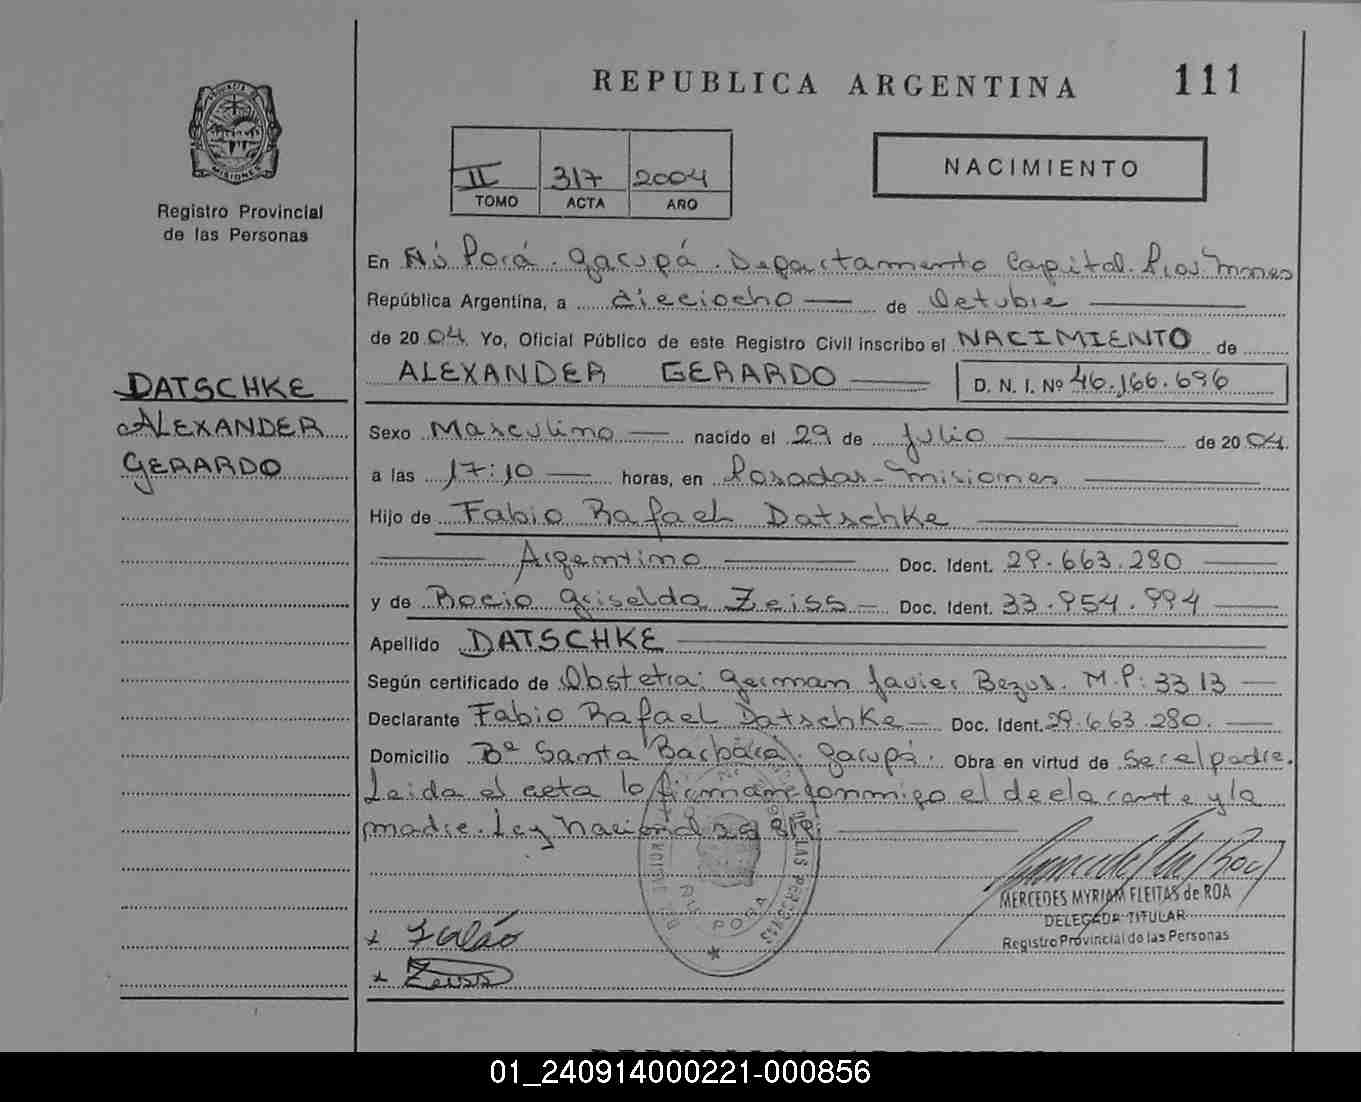 REPUBLICA ARGENTINA
111
PROVINCIA DE MISIONES
Registro Provincial
de las Personas
II 317 2004
TOMO ACTA AÑO
NACIMIENTO
En Ñú Porá. Garupá. Departamento Capital. Prov. Mnes
República Argentina, a dieciocho de Octubre
de 2004. Yo, Oficial Público de este Registro Civil inscribo el NACIMIENTO de
ALEXANDER GERARDO D. N. I. Nº 46.166.696
DATSCHKE
ALEXANDER
GERARDO
Sexo Masculino nacido el 29 de Julio de 2004.
a las 17:10 horas, en Posadas - Misiones
Hijo de Fabio Rafael Datschke
Argentino Doc. Ident. 29.663.280
y de Rocio Griselda Zeiss Doc. Ident. 33.954.994
Apellido DATSCHKE
Según certificado de Obstetra: German Javier Bezus. M.P: 3313
Declarante Fabio Rafael Datschke Doc. Ident. 29.663.280.
Domicilio Bº Santa Barbara. Garupá. Obra en virtud de ser el padre.
Leida el acta lo firman conmigo el declarante y la
madre. Ley Nacional
MERCEDES MYRIAM FLEITAS de ROA
DELEGADA TITULAR
Registro Provincial de las Personas
DE LAS PERSONAS
ÑU PORA
x Fabio
x Zeiss
REPUBLICA ARGENTINA
01_240914000221-000856